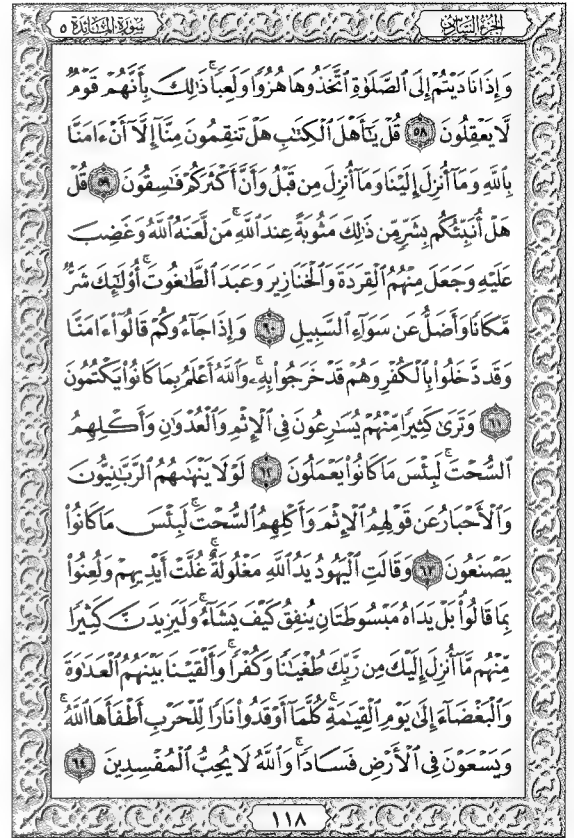 سورة المائدة ٥ الجزء السادس
وَإِذَا نَادَيْتُمْ إِلَى ٱلصَّلَوٰةِ ٱتَّخَذُوهَا هُزُوًا وَلَعِبًا ۚ ذَٰلِكَ بِأَنَّهُمْ قَوْمٌ
لَّا يَعْقِلُونَ ٥٨ قُلْ يَٰٓأَهْلَ ٱلْكِتَٰبِ هَلْ تَنقِمُونَ مِنَّآ إِلَّآ أَنْ ءَامَنَّا
بِٱللَّهِ وَمَآ أُنزِلَ إِلَيْنَا وَمَآ أُنزِلَ مِن قَبْلُ وَأَنَّ أَكْثَرَكُمْ فَٰسِقُونَ ٥٩ قُلْ
هَلْ أُنَبِّئُكُم بِشَرٍّ مِّن ذَٰلِكَ مَثُوبَةً عِندَ ٱللَّهِ ۚ مَن لَّعَنَهُ ٱللَّهُ وَغَضِبَ
عَلَيْهِ وَجَعَلَ مِنْهُمُ ٱلْقِرَدَةَ وَٱلْخَنَازِيرَ وَعَبَدَ ٱلطَّٰغُوتَ ۚ أُو۟لَٰٓئِكَ شَرٌّ
مَّكَانًا وَأَضَلُّ عَن سَوَآءِ ٱلسَّبِيلِ ٦٠ وَإِذَا جَآءُوكُمْ قَالُوٓا۟ ءَامَنَّا
وَقَد دَّخَلُوا۟ بِٱلْكُفْرِ وَهُمْ قَدْ خَرَجُوا۟ بِهِۦ ۚ وَٱللَّهُ أَعْلَمُ بِمَا كَانُوا۟ يَكْتُمُونَ
٦١ وَتَرَىٰ كَثِيرًا مِّنْهُمْ يُسَٰرِعُونَ فِى ٱلْإِثْمِ وَٱلْعُدْوَٰنِ وَأَكْلِهِمُ
ٱلسُّحْتَ ۚ لَبِئْسَ مَا كَانُوا۟ يَعْمَلُونَ ٦٢ لَوْلَا يَنْهَىٰهُمُ ٱلرَّبَّٰنِيُّونَ
وَٱلْأَحْبَارُ عَن قَوْلِهِمُ ٱلْإِثْمَ وَأَكْلِهِمُ ٱلسُّحْتَ ۚ لَبِئْسَ مَا كَانُوا۟
يَصْنَعُونَ ٦٣ وَقَالَتِ ٱلْيَهُودُ يَدُ ٱللَّهِ مَغْلُولَةٌ ۚ غُلَّتْ أَيْدِيهِمْ وَلُعِنُوا۟
بِمَا قَالُوا۟ ۘ بَلْ يَدَاهُ مَبْسُوطَتَانِ يُنفِقُ كَيْفَ يَشَآءُ ۚ وَلَيَزِيدَنَّ كَثِيرًا
مِّنْهُم مَّآ أُنزِلَ إِلَيْكَ مِن رَّبِّكَ طُغْيَٰنًا وَكُفْرًا ۚ وَأَلْقَيْنَا بَيْنَهُمُ ٱلْعَدَٰوَةَ
وَٱلْبَغْضَآءَ إِلَىٰ يَوْمِ ٱلْقِيَٰمَةِ ۚ كُلَّمَآ أَوْقَدُوا۟ نَارًا لِّلْحَرْبِ أَطْفَأَهَا ٱللَّهُ ۚ
وَيَسْعَوْنَ فِى ٱلْأَرْضِ فَسَادًا ۚ وَٱللَّهُ لَا يُحِبُّ ٱلْمُفْسِدِينَ ٦٤
١١٨